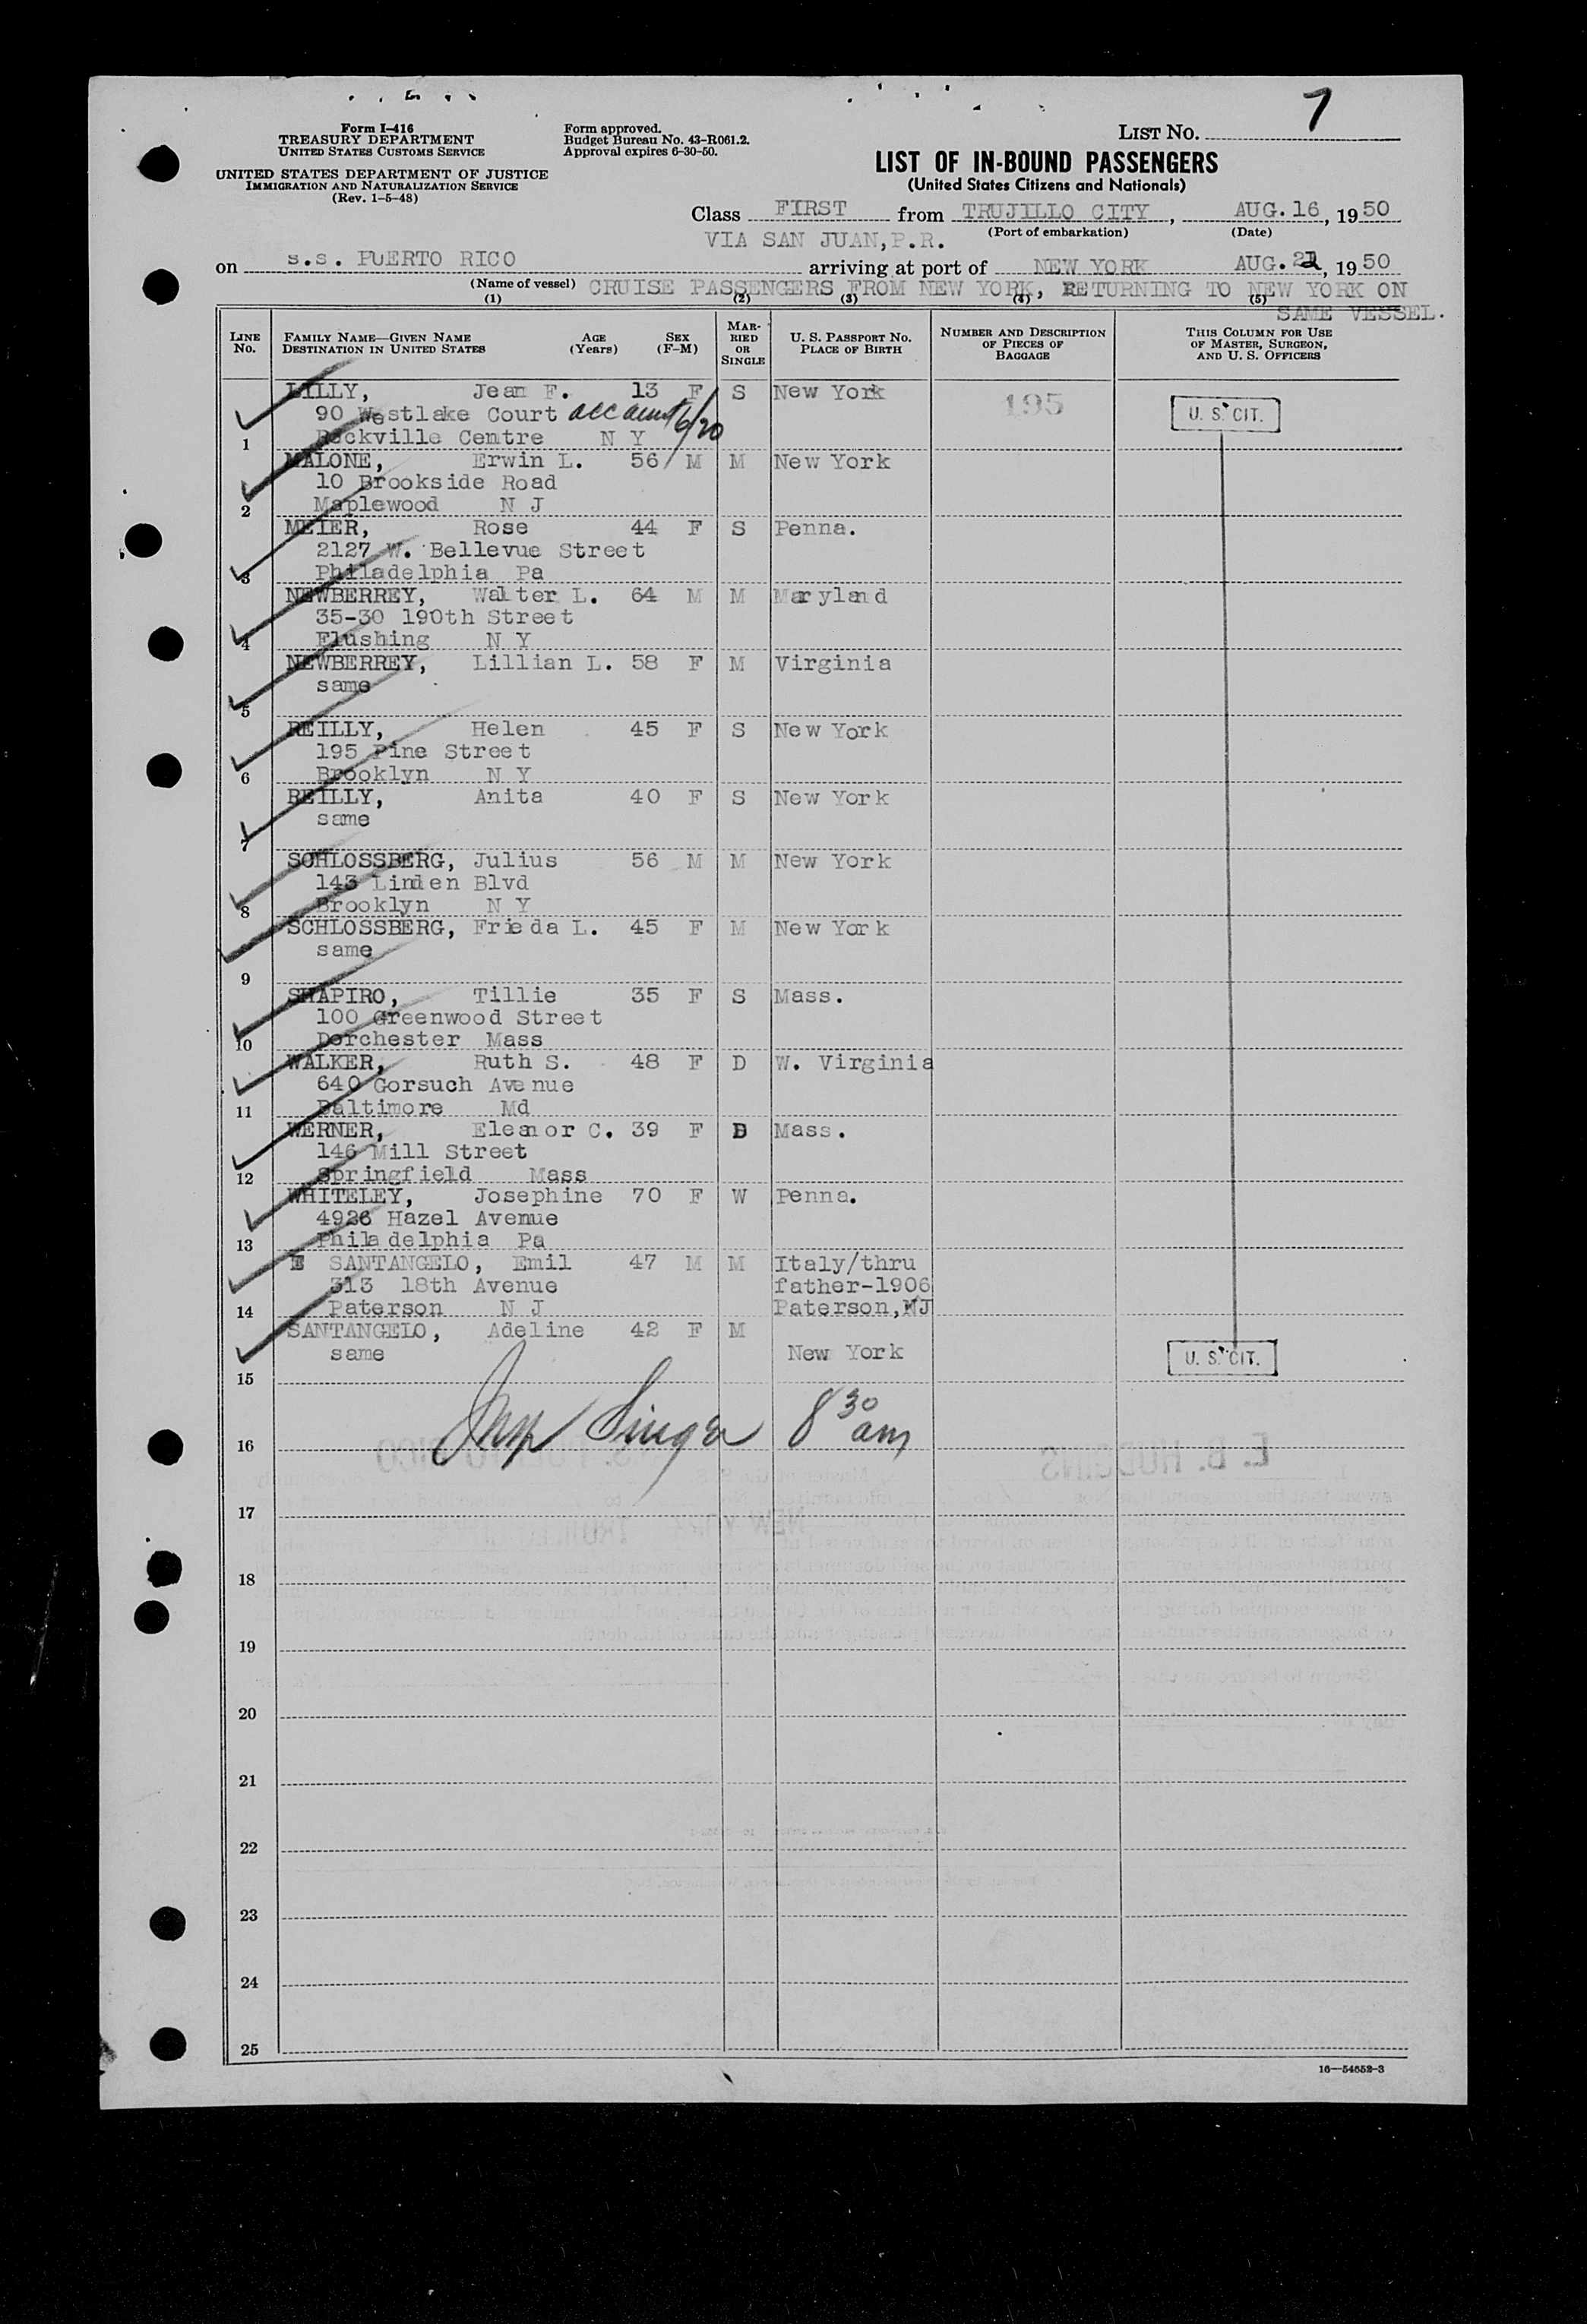 7
Form I-416
TREASURY DEPARTMENT
UNITED STATES CUSTOMS SERVICE
UNITED STATES DEPARTMENT OF JUSTICE
IMMIGRATION AND NATURALIZATION SERVICE
(Rev. 1-5-48)
Form approved.
Budget Bureau No. 43-R061.2.
Approval expires 6-30-50.
LIST NO.
LIST OF IN-BOUND PASSENGERS
(United States Citizens and Nationals)
Class FIRST from TRUJILLO CITY, AUG. 16, 1950
VIA SAN JUAN, P.R. (Port of embarkation) (Date)
on s.s. PUERTO RICO arriving at port of NEW YORK AUG. 1950
(Name of vessel) CRUISE PASSENGERS FROM NEW YORK, RETURNING TO NEW YORK ON
SAME VESSEL.
(1) (2) (3) (4) (5)
LINE NO. FAMILY NAME—GIVEN NAME DESTINATION IN UNITED STATES AGE (Years) SEX (F-M) MARRIED OR SINGLE U. S. PASSPORT NO. PLACE OF BIRTH NUMBER AND DESCRIPTION OF PIECES OF BAGGAGE THIS COLUMN FOR USE OF MASTER, SURGEON, AND U. S. OFFICERS
LILLY, Jean F. 13 F S New York 195 U. S. CIT.
90 Westlake Court 6/20
1 Rockville Centre N Y
MALONE, Erwin L. 56 M M New York
10 Brookside Road
2 Maplewood N J
MEIER, Rose 44 F S Penna.
2127 W. Bellevue Street
3 Philadelphia Pa
NEWBERREY, Walter L. 64 M M Maryland
35-30 190th Street
4 Flushing N Y
NEWBERREY, Lillian L. 58 F M Virginia
same
5
REILLY, Helen 45 F S New York
195 Pine Street
6 Brooklyn N Y
REILLY, Anita 40 F S New York
same
7
SCHLOSSBERG, Julius 56 M M New York
143 Linden Blvd
8 Brooklyn N Y
SCHLOSSBERG, Frieda L. 45 F M New York
same
9
SHAPIRO, Tillie 35 F S Mass.
100 Greenwood Street
10 Dorchester Mass
WALKER, Ruth S. 48 F D W. Virginia
640 Gorsuch Avenue
11 Baltimore Md
WERNER, Eleanor C. 39 F D Mass.
146 Mill Street
12 Springfield Mass
WHITELEY, Josephine 70 F W Penna.
4926 Hazel Avenue
13 Philadelphia Pa
SANTANGELO, Emil 47 M M Italy/thru
313 18th Avenue father-1906
14 Paterson N J Paterson, NJ
SANTANGELO, Adeline 42 F M
same New York U. S. CIT.
15
Singer 8 30 am
16
17
18
19
20
21
22
23
24
25
16—54652-3